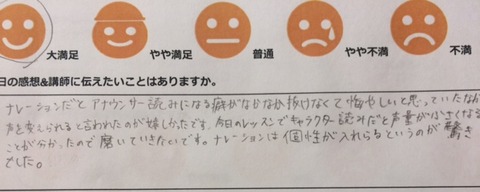 大満足 やや満足 普通 やや不満 不満
日の感想&講師に伝えたいことはありますか。
ナレーションだと アナウンサー読みになる癖がなかなか抜けなくて悔やしいと思っていたなか
声を変えられると言われたのが嬉しかったです。今日のレッスンでキャラクター読みだと声量が小さくなる
ことが分かったので 磨いていきたいです。ナレーションは個性が入れらるというのが驚き
でした。